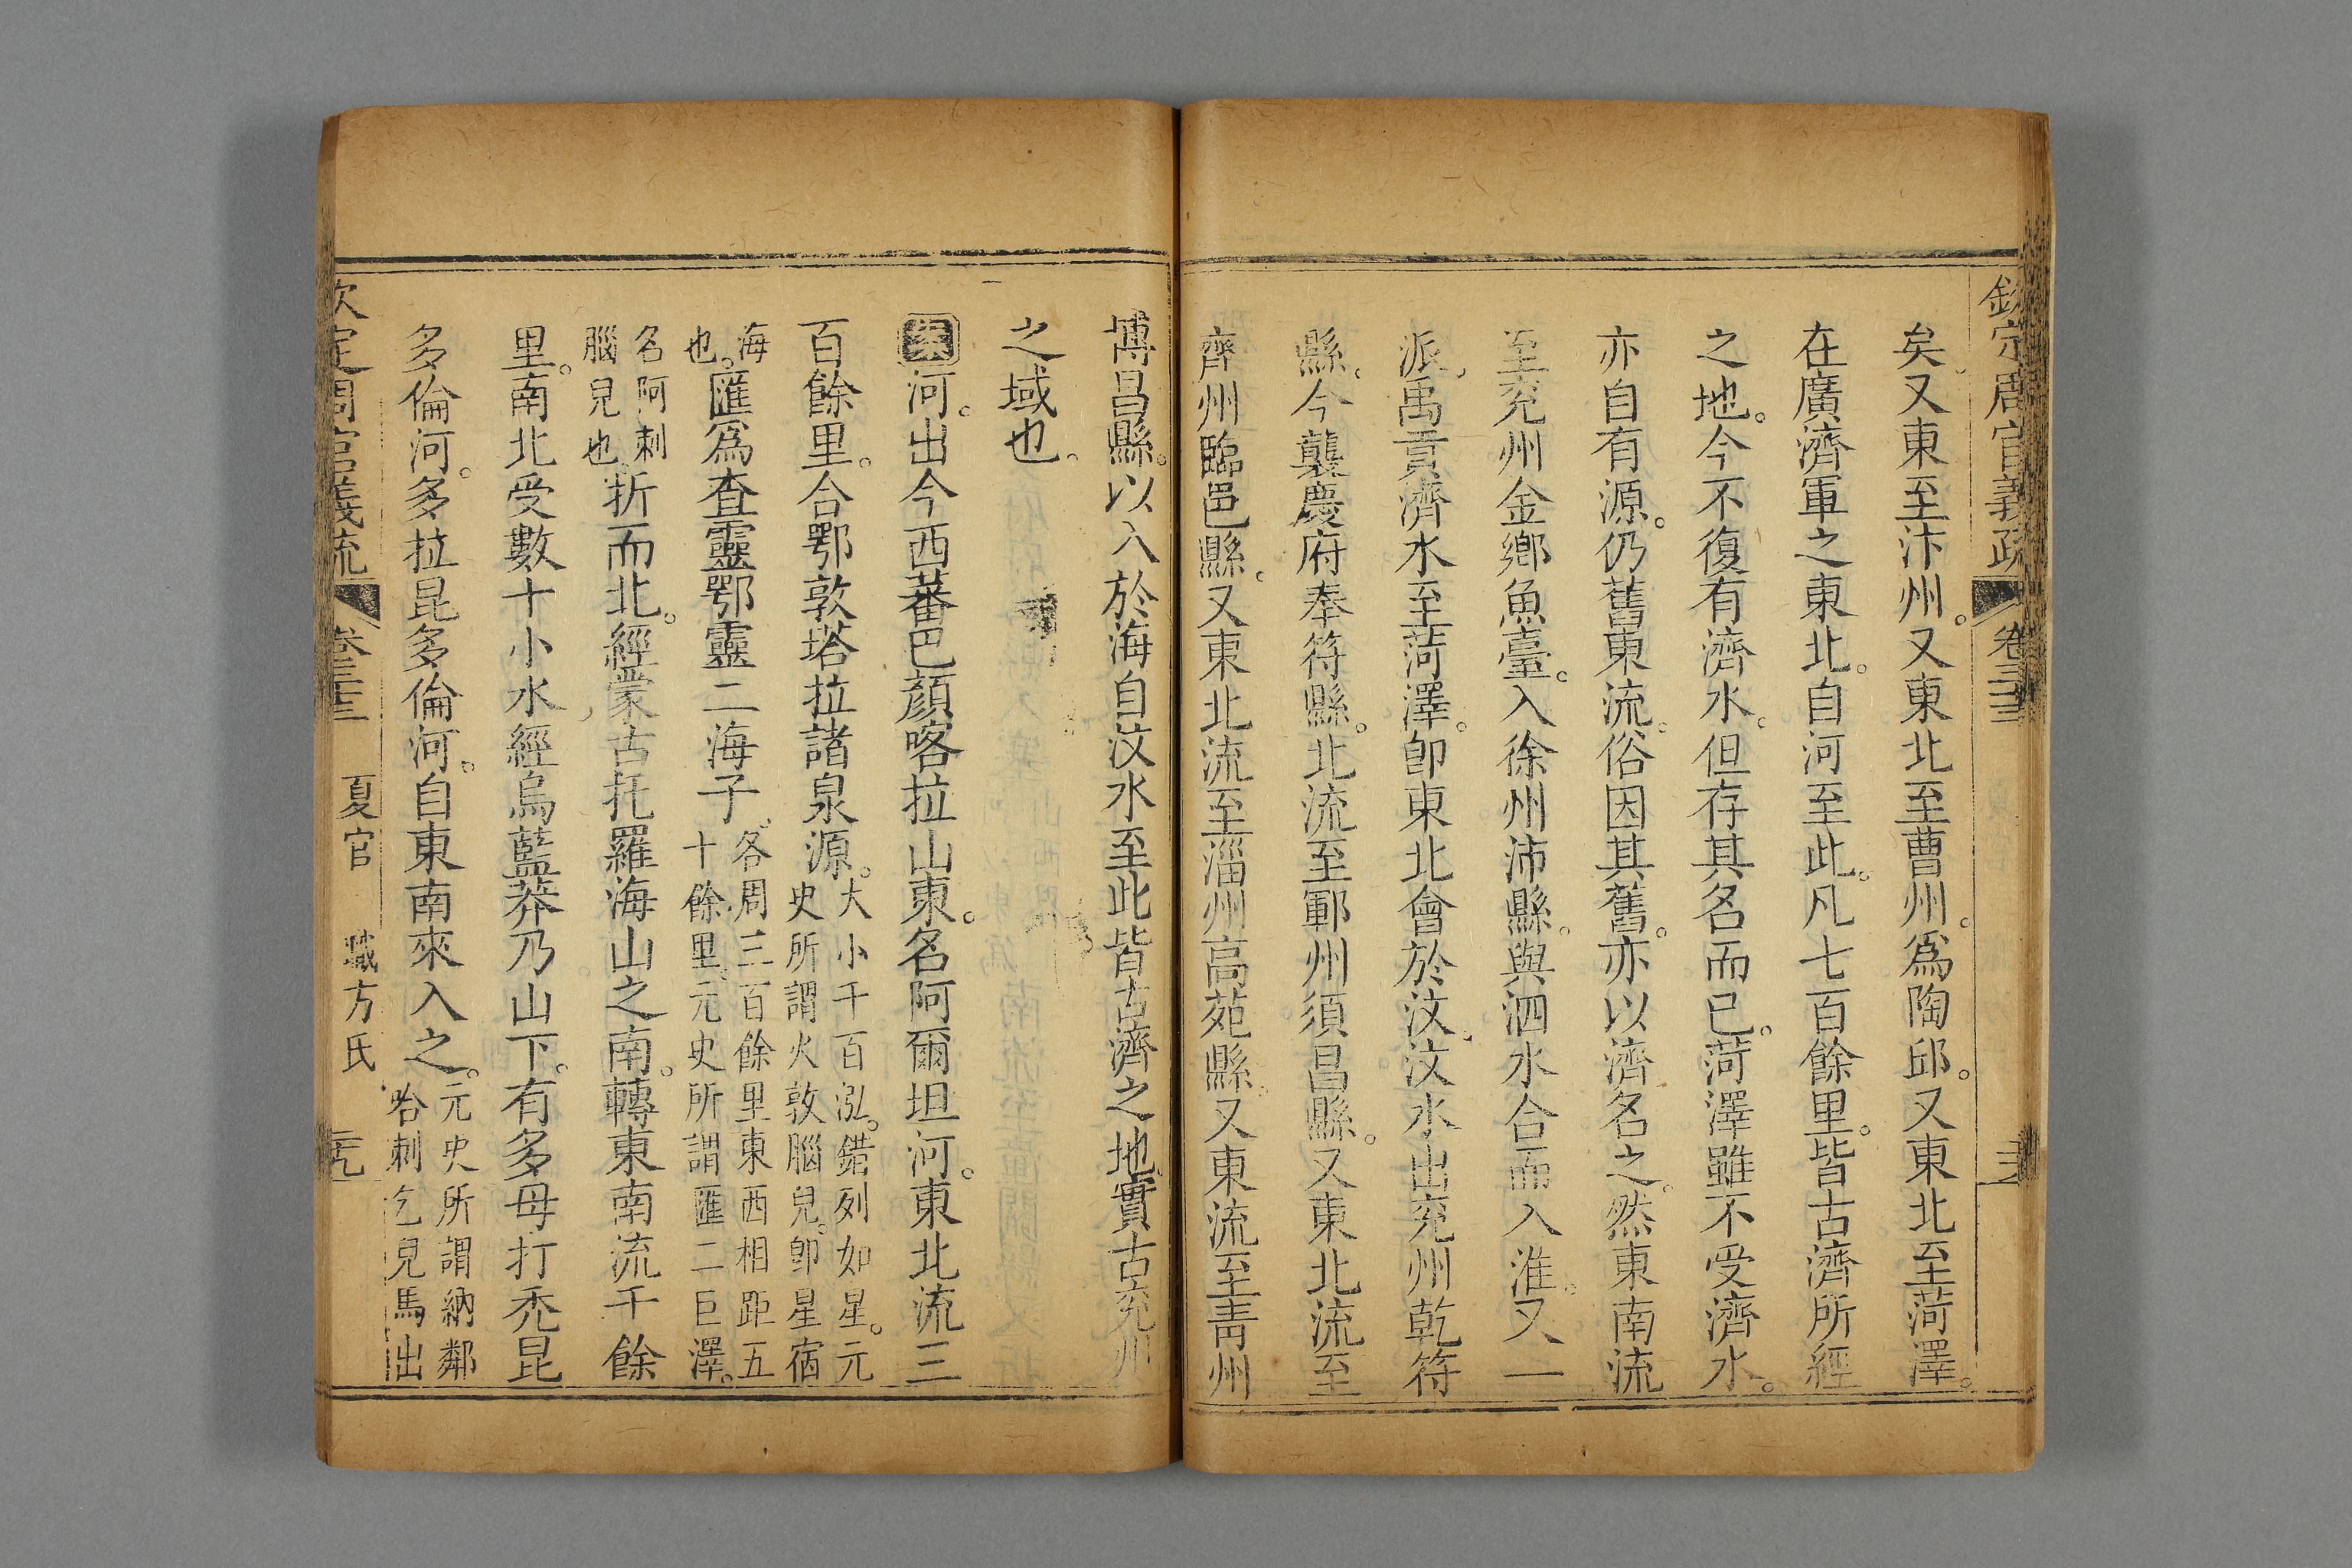 欽定周官義疏 卷三十三
矣又東至汴州。又東北至曹州。爲陶邱。又東北至菏澤。
在廣濟軍之東北。自河至此。凡七百餘里。皆古濟所經
之地。今不復有濟水。但存其名而已。菏澤雖不受濟水。
亦自有源。仍舊東流。俗因其舊。亦以濟名之。然東南流
至兖州金鄉魚臺。入徐州沛縣。與泗水合而入淮。又一
派禹貢濟水至菏澤。卽東北會於汶。汶水出兖州乾符
縣。今襲慶府奉符縣。北流至鄆州須昌縣。又東北流至
齊州臨邑縣。又東北流至淄州高苑縣。又東流至青州
博昌縣。以入於海自汶水至此皆古濟之地。實古兖州
之域也。
案河。出今西蕃巴顏喀拉山東。名阿爾坦河。東北流三
百餘里。合鄂敦塔拉諸泉源。大小千百泓。錯列如星。元
史所謂火敦腦兒。卽星宿
海
也。匯爲查靈鄂靈二海子。各周三百餘里東西相距五
十餘里。元史所謂匯二巨澤。
名阿刺
腦兒也。折而北。經蒙古托羅海山之南。轉東南流千餘
里。南北受數十小水經烏藍莽乃山下。有多母打禿昆
多倫河。多拉昆多倫河。自東南來入之。元史所謂納鄰
哈刺乞兒馬出
欽定周官義疏 卷三十三 夏官 職方氏